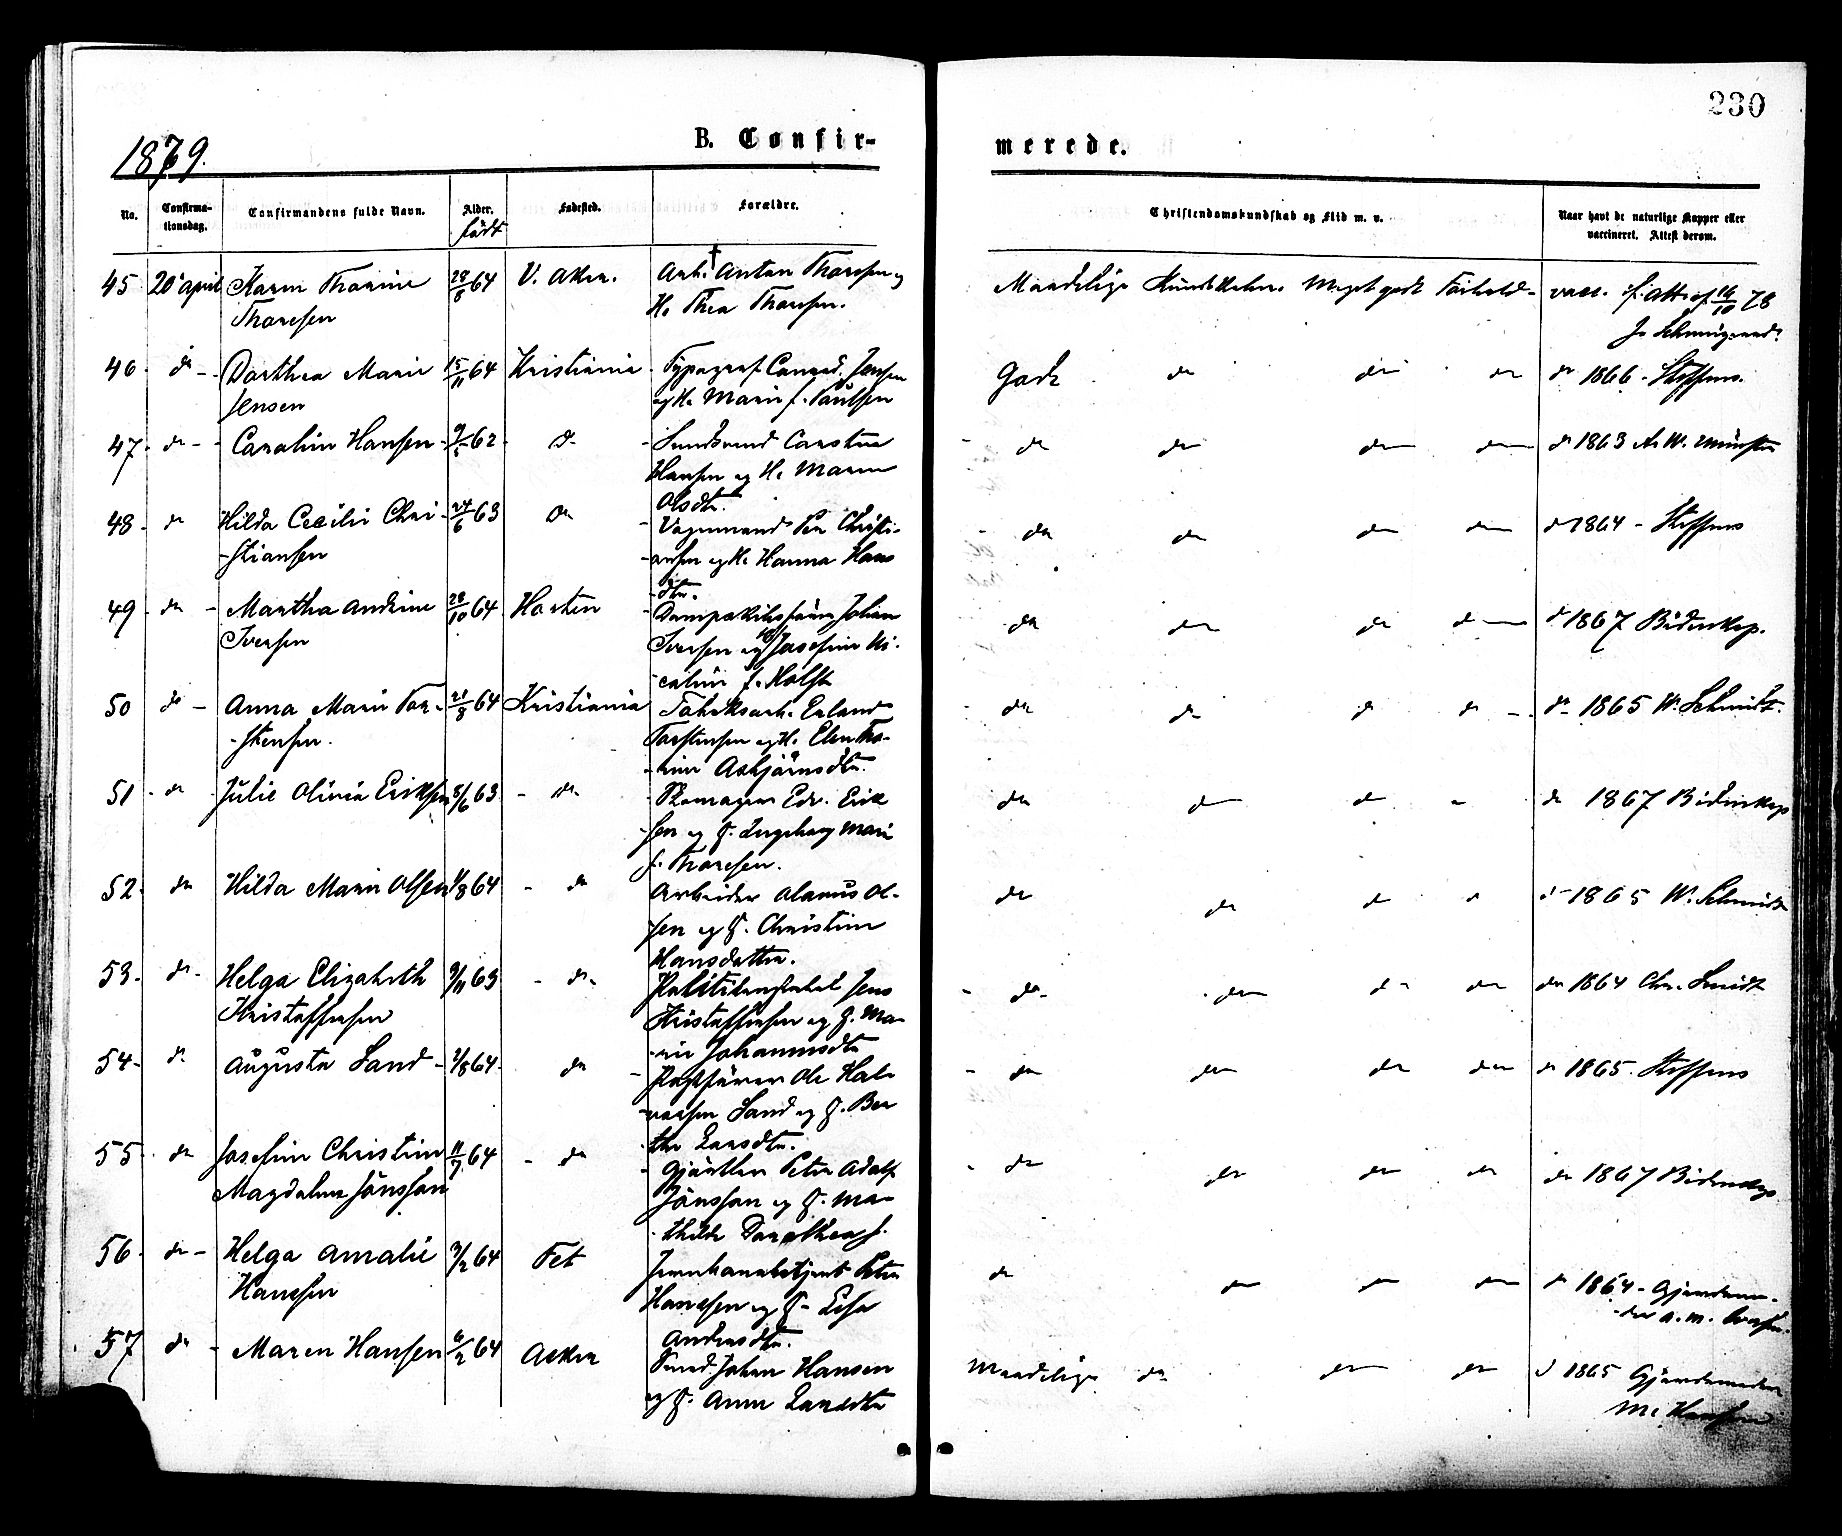 230
1879.
B. Confir-
merede.
No.
Confirma-
tionsdag.
Confirmandens fulde Navn.
Alder.
födt
Fødested.
Forældre.
Christendomskundskab og Flid m. v.
Naar havt de naturlige Kopper eller
vaccineret. Attest derom.
45 20 april Karen Thorine 28/8 64 V. Aker. Arb. Anton Thoresen og
Thoresen H. Thea Thoresen.
Maadelige Kundskaber. Meget godt Forhold vacc. 16/10 78
46 do Dorthea Marie 15/11 64 Kristiania Typograf Conrad Jensen
Jensen og H. Marie f. Paulsen
Godt do do do do 1866 Steffens.
47 do Caroline Hansen 62 do Carsten
Hansen og H. Maren
Olsdtr.
do do do do do 1863
48 do Hilda Cecilie Chri- 24/6 63 do Vognmand Per Christi-
stiansen ansen og H. Hanna Hans
dtr.
do do do do do 1864 Steffens
49 do Martha Andrine 28/10 64 Horten Johan
Iversen Iversen og H. Josefine Ni-
coline f. Holst
do do do do do 1867 Bidenkap.
50 do Anna Marie Tor- 21/8 64 Kristiania Fabriksarb. Erland
stensen. Torstensen og H. Elen Tho-
rine Asbjörnsdtr.
do do do do do 1865 W. Schmidt.
51 do Julie Olivia Eriksen 8/6 63 do Skomager Edv. Erik
sen og H. Ingeborg Marie
f. Thoresen.
do do do do 1867 Bidenkap
52 do Hilda Marie Olsen /8 64 do Arbeider Ol-
sen og H. Christine
Hansdatter.
do do do do do 1865 W. Schmidt
53 do Helga Elizabeth 9/11 63 do Politikonstabel Jens
Kristoffersen Kristoffersen og H. Ma-
rie Johannesdtr
do do do do do 1864 Chr. Smidt
54 do Augusta Sand /8 64 do Ole Hal-
vorsen Sand og H. Ber
the Larsdtr.
do do do do do 1865. Steffens
55 do Josefine Christine 11/9 64 do Gjørtler Peter Adolf
Magdalene Jönsson Jönsson og H. Ma-
thilde Dorothea f.
do do do do do 1867 Bidenkap
56 do Helga Amalie 3/2 64 Fet Jernbanebetjent Peter
Hansen Hansen og H. Lisa
Andersdtr.
do do do do do 1864 Gjordemo-
der A. M.
57 do Maren Hansen 6/2 64 Asker Johan Hansen
og H. Anne Larsdtr
Maadelige do do do do 1865 Gjordemoder
M. Hansen